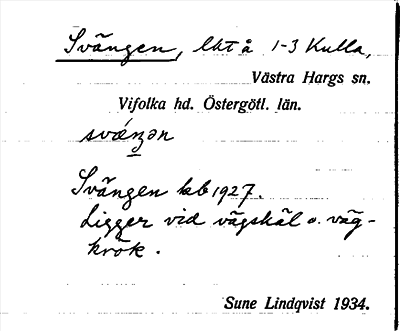 Svängen, lht å 1-3 Kulla,
Västra Hargs sn.
Vifolka hd. Östergötl. län.
svǽŋən
Svängen kb 1927.
Ligger vid vägskäl o. väg-
krök.
Sune Lindqvist 1934.